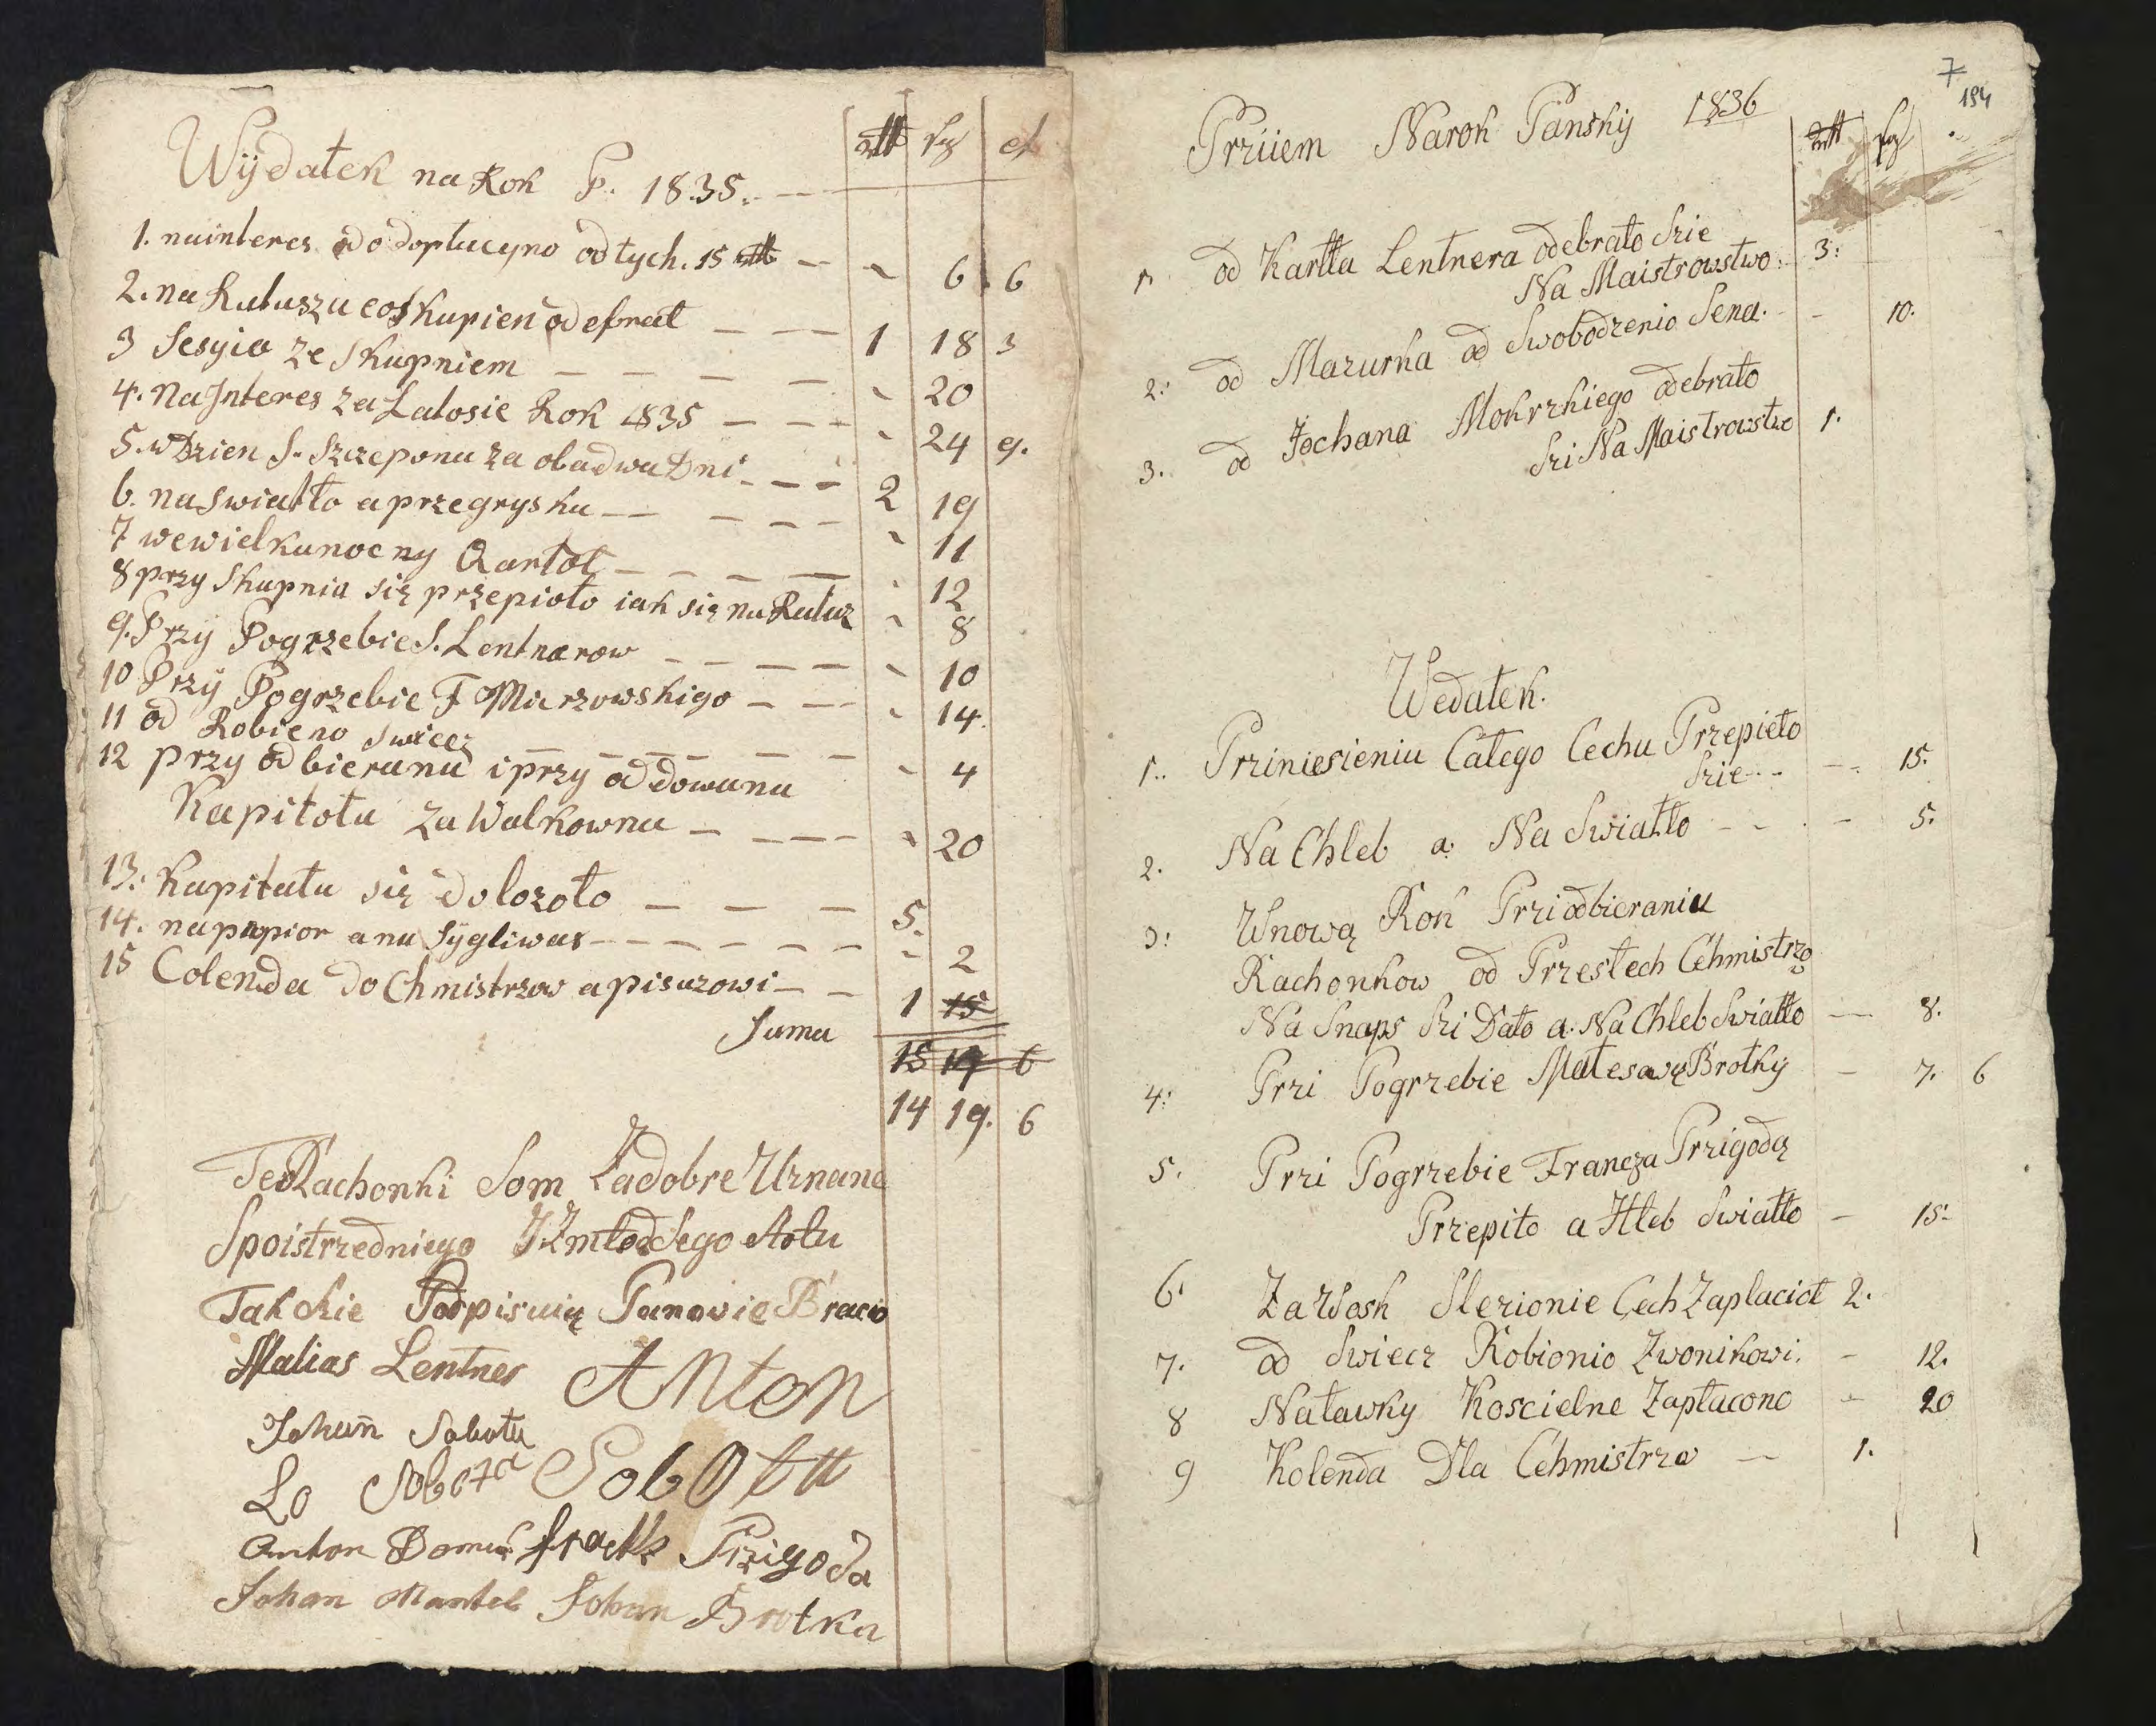 Wÿdatek na Rok P. 1835. rtl sgl ch
1. nainteres do doptacyno od tych. 15 rtl 6 6
2. na Ratuszu co Skupien odebrał 1 18 3
3 Sesyia ze Skupniem 20
4. Na Interes za Latosie Rok 1835 24 9.
5. w Dzien S. Szczepona za obadwa Dni 2 19
6. na Swiatło a przegryska 11
7 wewielkanocny Qartoł 12
8 przy Skupnia się przepioto iak się na Ratuz 8
9. Przÿ Pogrzebie S. Lentnerow 10
10 Przÿ Pogrzebie F Miarzowskigo 14.
11 od Robieno Swiecz 4
12 przy odbieranu i przy oddowanu
Kapitołu za Walkownu 20
13: Kapitału się dolozoło 5.
14. na papior a na Sÿgliwax 2
15 Colenda do Chmistrzow a pisarzowi 1 15
Suma 15 17 6
14 19. 6
Te Rachonki Som Zadobre Uznane
Spoistrzedniego J Zmłodsego Stołu
Tak Sie Podpisuią Panowie Bracio
Matias Lentner Anton
Johan̄ Sobota
Lo Sobota Sobotta
Anton Domin Przigoda
Johan Mantel Johan Brotka
7
194
Prziiem Narok Pański 1836
rtl sgl
1. od Karlla Lentnera odebrało Szie
Na Maistrowstwo: 3:
2: od Mazurka od Swobodzenio Sena. 10.
3. od Jochana Mokrzkiego odebrało
Szi Na Maistrowstwo 1.
Wedatek.
1.. Priniesieniu Całego Cechu Przepieło
Szie 15.
2. Na Chleb a Na Swiatło 5.
3: Wnową Rok Przi odbieraniu
Rachonkow od Przestech Cehmistrzo
Na Snaps Szi Dało a. Na Chleb Swiatło 8.
4: Przi Pogrzebie Matesawę Brotky 7. 6
5. Przi Pogrzebie Francza Przigodą
Przepito a Hleb Swiatło 15:
6. Za Wosk Slezionie Cech Zaplaciot 2.
7. od Swiecz Robionio Zwonikowi. 12.
8 Naławky Koscielne Zapłacono 20
9 Kolenda Dla Cehmistrza 1.